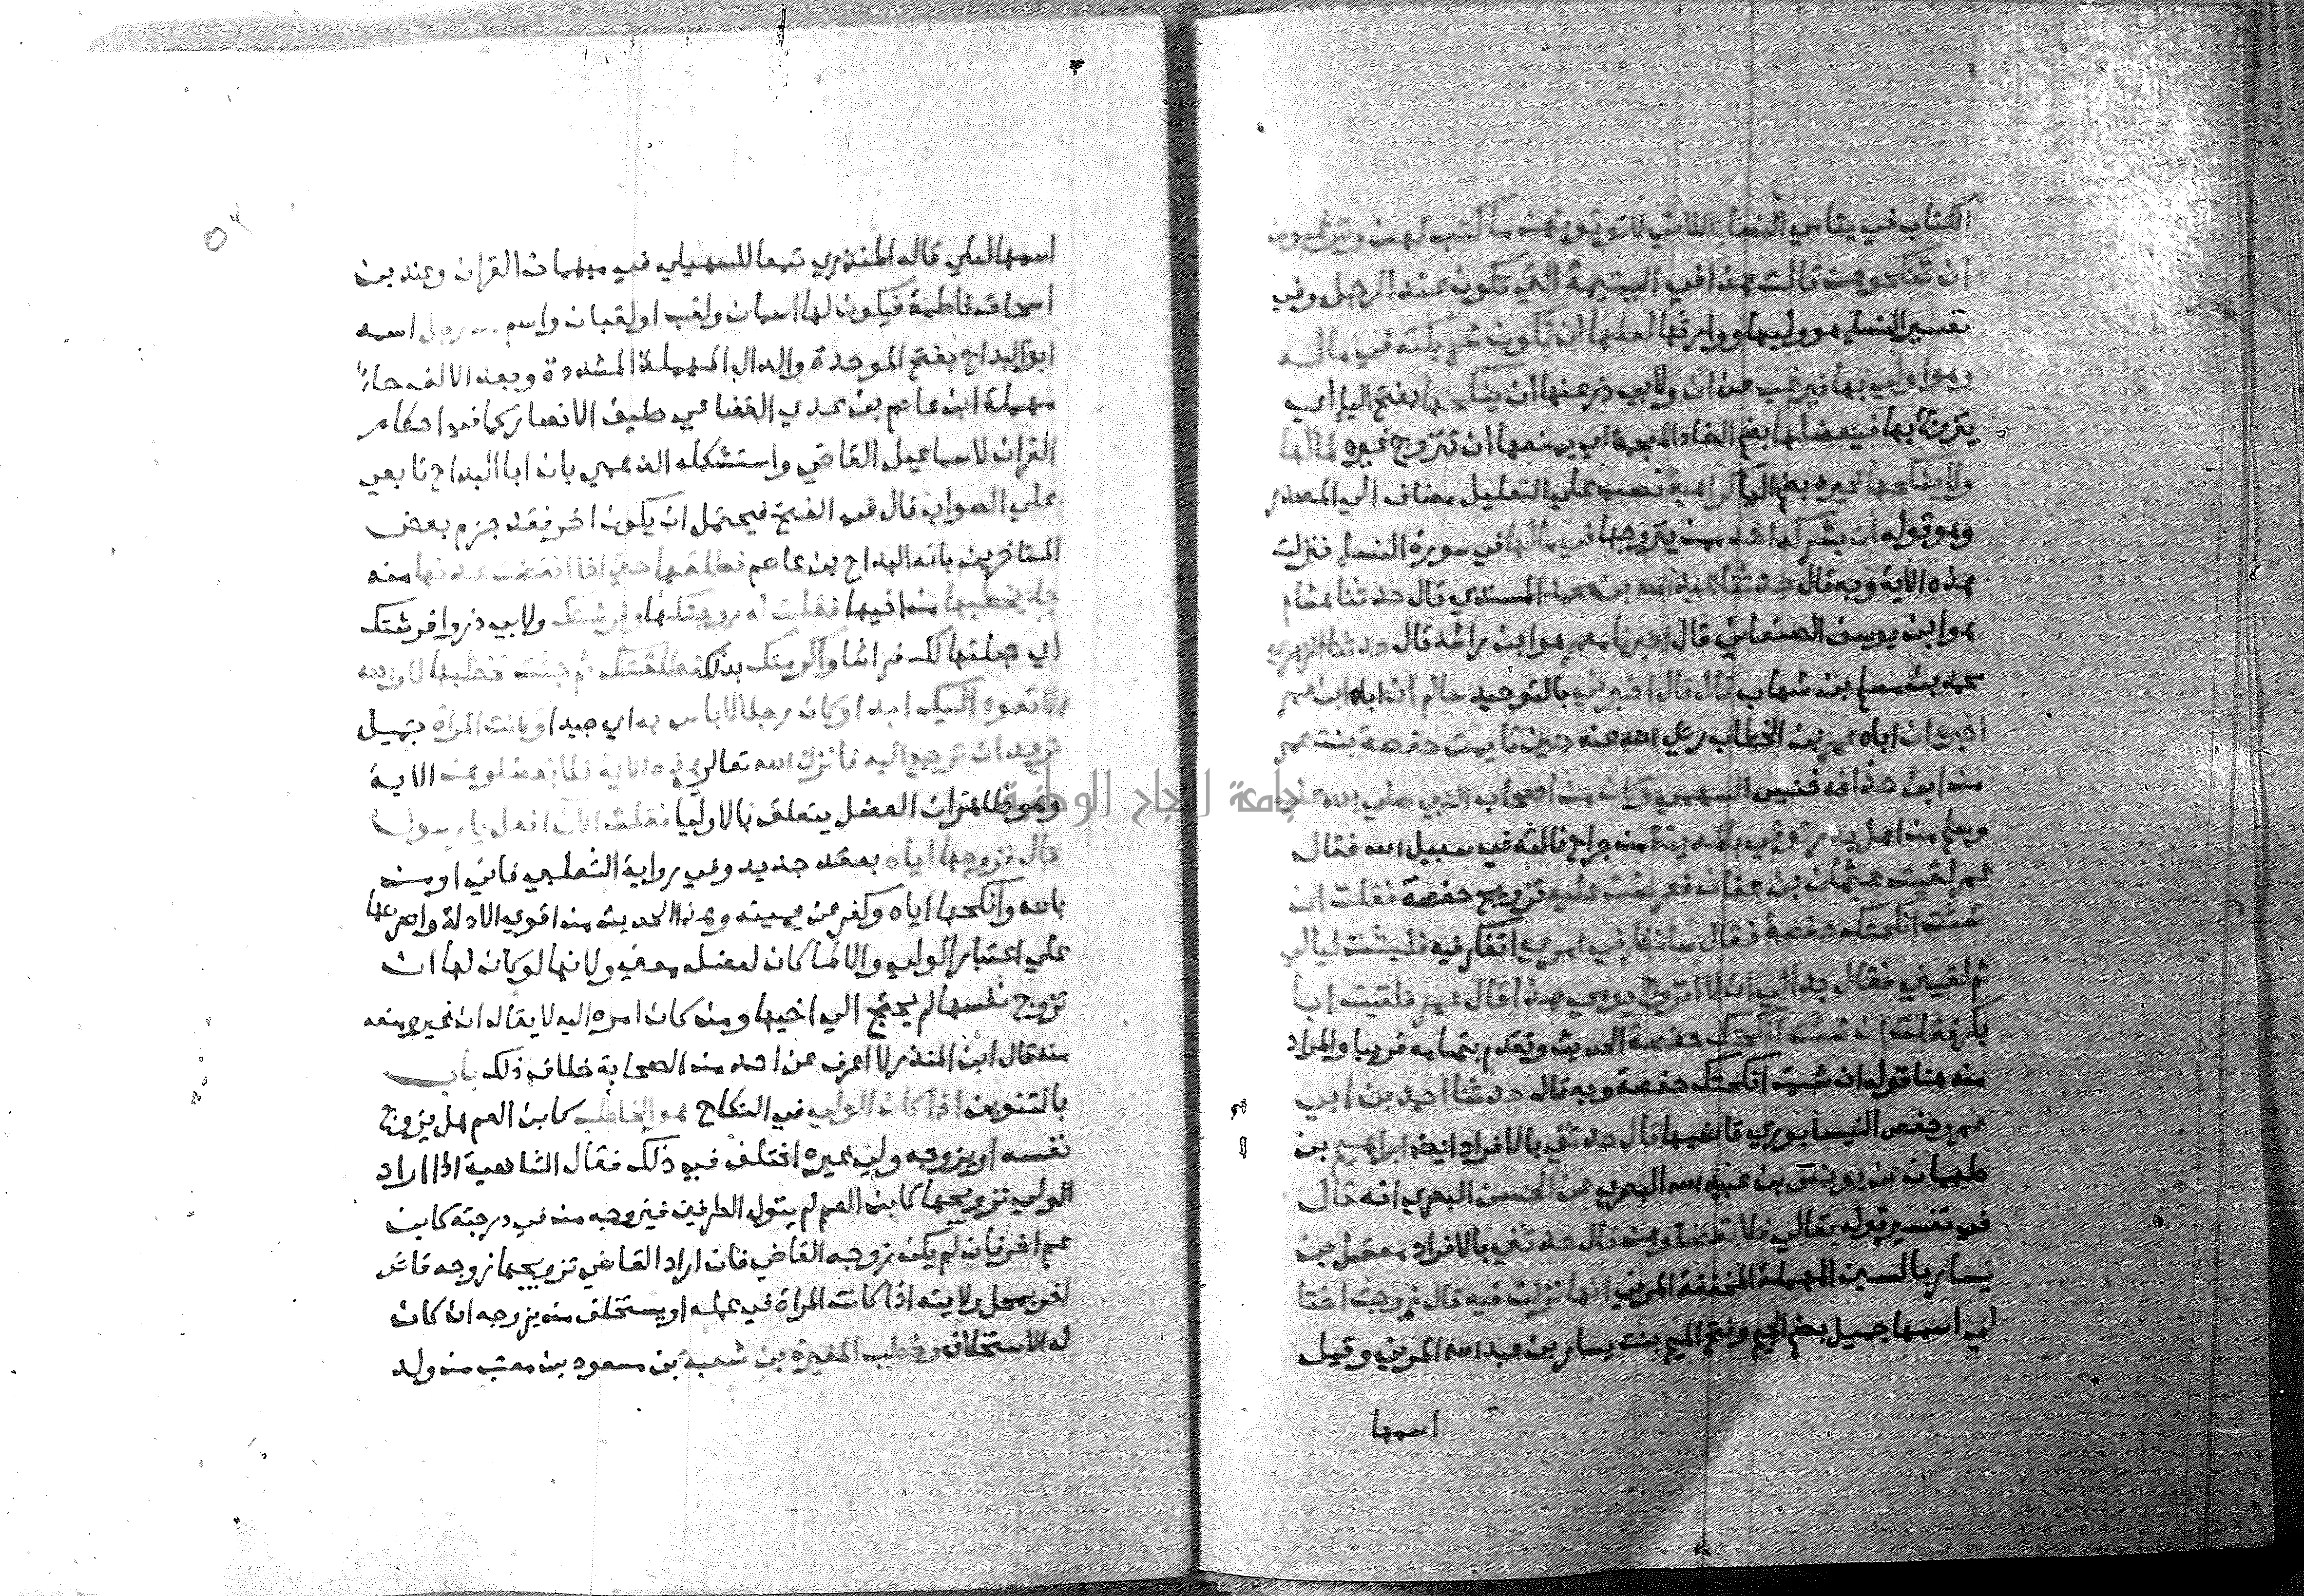 الكتاب في يتامي النساء اللاتي لا تؤتونهن ما كتب لهن وترغبون
ان تنكحوهن قالت هذا في اليتيمة التي تكون عند الرجل وفي
تفسير النساء هو وليها ووارثها لعلها ان تكون شريكته في ماله
وهو اولي بها فيرغب عن ان ولابي ذر عنها ان ينكحها بفتح اليا اي
يتزوج بها فيعضلها بضم الضاد المعجمة اي يمنعها ان تتزوج غيره لمالها
ولا ينكحها غيره بضم اليا كراهية نصب علي التعليل مضاف الي المصدر
وهو قوله ان يشركه احد ممن يتزوجها في مالها في سورة النساء فنزلت
هذه الاية وبه قال حدثنا عبد الله بن محمد المسندي قال حدثنا هشام
هو ابن يوسف الصنعاني قال اخبرنا معمر هو ابن راشد قال حدثنا الزهري
محمد بن مسلم بن شهاب قال قال اخبرني بالتوحيد سالم ان اباه ابن عمر
اخبره ان اباه عمر بن الخطاب رضي الله عنه حين تايمت حفصة بنت عمر
من ابن حذافه خنيس السهمي وكان من اصحاب النبي صلي الله عليه
وسلم من اهل بدر توفي بالمدينة من جراح نالته في سبيل الله فقال
عمر لقيت عثمان بن عفان فعرضت عليه تزويج حفصة فقلت ان
شئت انكحتك حفصة فقال سانظر في امري اتفكر فيه فلبثت ليالي
ثم لقيني فقال بدا لي ان لا اتزوج يومي هذا قال عمر فلقيت ابا
بكر فقلت ان شئت انكحتك حفصة الحديث وتقدم بتمامه قريبا والمراد
منه هنا قوله ان شيت انكحتك حفصة وبه قال حدثنا احمد بن ابي
عمرو حفص النيسابوري قاضيها قال حدثني بالافراد ايضا ابراهيم بن
طهمان عن يونس بن عبيد الله البصري عن الحسن البصري انه قال
في تفسير قوله تعالي فلا تعضلوهن قال حدثني بالافراد معقل بن
يسار بالسين المهملة المخففة المزني انها نزلت فيه قال زوجت اختا
لي اسمها جميل بضم الجيم وفتح الميم بنت يسار بن عبد الله المزني وقيل
اسمها
٥٢
اسمها ليلي قاله المنذري تبعا للسهيلي في مبهمات القران وعند بن
اسحاق فاطمة فيكون لها اسمان ولقب او لقبان واسم من رجل اسمه
ابو البداح بفتح الموحدة والدال المهملة المشددة وبعد الالف حاء
مهملة ابن عاصم بن عدي القضاعي حليف الانصار كما في احكام
القران لاسماعيل القاضي واستشكله الذهبي بان ابا البداح تابعي
علي الصواب قال في الفتح فيحتمل ان يكون اخر فقد جزم بعض
المتاخرين بانه البداح بن عاصم فطلقها حتي اذا انقضت عدتها منه
جاء يخطبها من اخيها فقلت له زوجتكها وفرشتك ولابي ذر وافرشتك
اي جعلتها لك فراشا واكرمتك بذلك فطلقتها ثم جئت تخطبها لا والله
لا تعود اليك ابدا وكان رجلا لا باس به اي جيدا وكانت المراة جميل
تريد ان ترجع اليه فانزل الله تعالي هذه الاية فلا تعضلوهن الاية
وهو ظاهر ان العضل يتعلق بالاوليا فقلت الان افعل يا رسول
قال فزوجها اياه بعقد جديد وفي رواية الثعلبي فاني اومن
بالله وانكحها اياه وكفر عن يمينه وهذا الحديث من اقوي الادلة واصرحها
علي اعتبار الولي والا لما كان لعضله معني ولانها لو كان لها ان
تزوج نفسها لم يحتج الي اخيها ومن كان امره اليه لا يقال ان غيره منعه
منه قال ابن المنذر لا اعرف عن احد من الصحابة خلاف ذلك باب
بالتنوين اذا كان الولي في النكاح هو الخاطب كابن العم هل يزوج
نفسه او يزوجه ولي غيره اختلف في ذلك فقال الشافعية اذا اراد
الولي تزويجها كابن العم لم يتول الطرفين فيزوجه من في درجته كابن
عم اخر فان لم يكن زوجه القاضي فان اراد القاضي تزويجها زوجه قاض
اخر بمحل ولايته اذا كانت المراة في عمله او يستخلف من يزوجه ان كان
له الاستخلاف وخطب المغيرة بن شعبة بن مسعود بن معتب من ولد
جامعة النجاح الوطنية